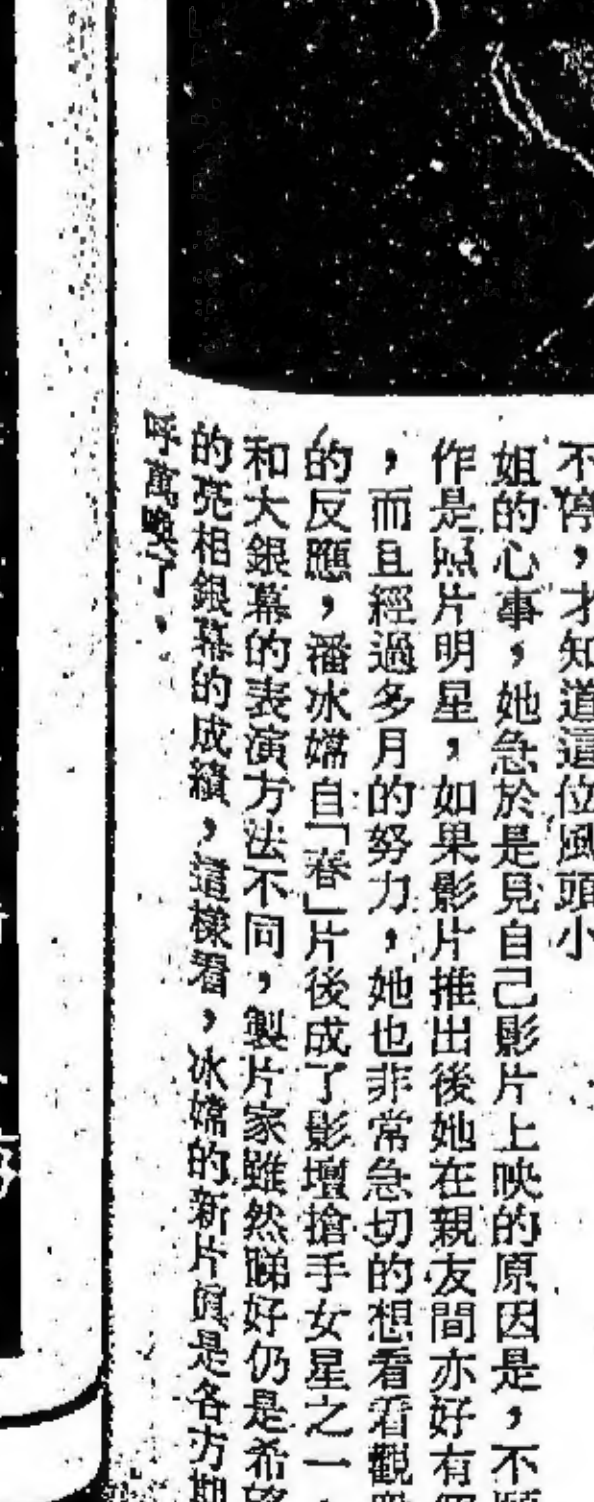 不停，才知道這位風頭小
姐的心事，她急於是見自己影片上映的原因是，不願
作是照片明星，如果影片推出後她在親友間亦好有個
，而且經過多月的努力，她也非常急切的想看看觀眾
的反應，潘冰嫦自「春」片後成了影壇搶手女星之一，
和大銀幕的表演方法不同，製片家雖然睇好仍是希望
的亮相銀幕的成績，這樣看，冰嫦的新片眞是各方期
呼萬喚了，